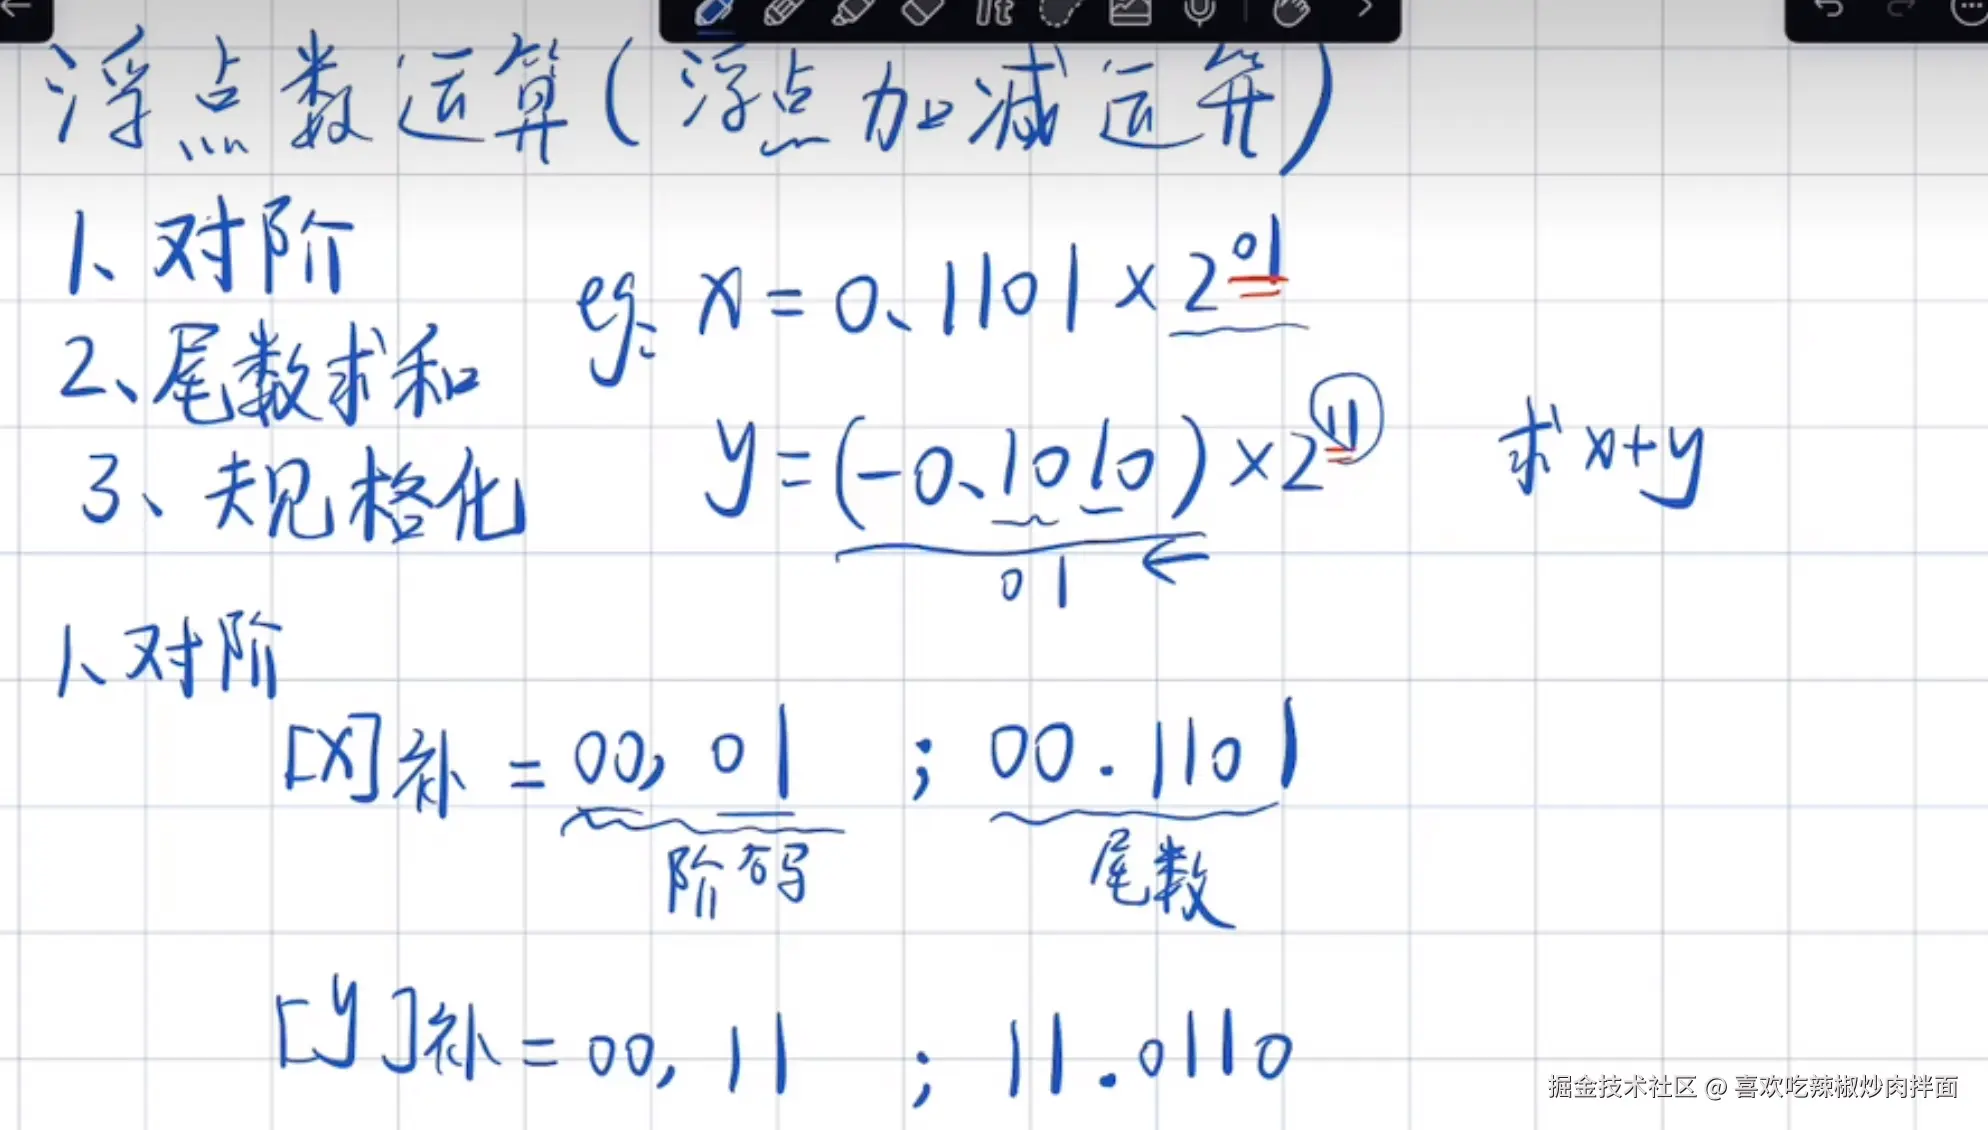 浮点数运算(浮点加减运算)
1、对阶
2、尾数求和
3、规格化
eg: x = 0.1101 × 2^01
y = (-0.1010) × 2^11 求x+y
01
1、对阶
[x]补 = 00,01 ; 00.1101
阶码 尾数
[y]补 = 00,11 ; 11.0110
掘金技术社区 @ 喜欢吃辣椒炒肉拌面